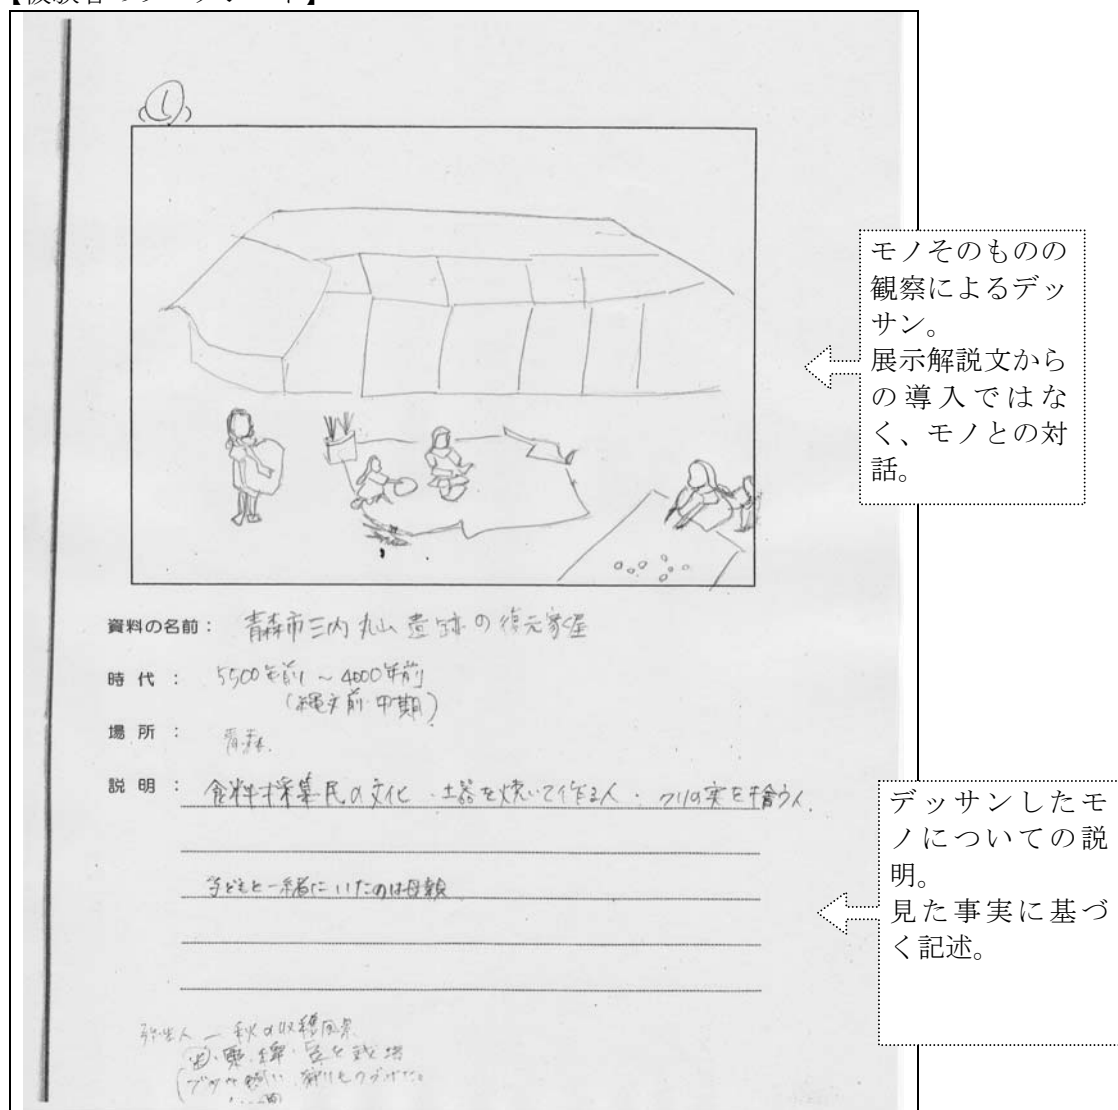 ①
モノそのものの
観察によるデッ
サン。
展示解説文から
の導入ではな
く、モノとの対
話。
資料の名前： 青森市三内丸山遺跡の復元家屋
時代： 5500年前～4000年前
（縄文前・中期）
場所： 青森
説明： 食料採集民の文化・土器を焼いて作る人・クリの実を拾う人
子どもと一緒にいたのは母親
デッサンしたモ
ノについての説
明。
見た事実に基づ
く記述。
弥生人 ― 秋の収穫風景